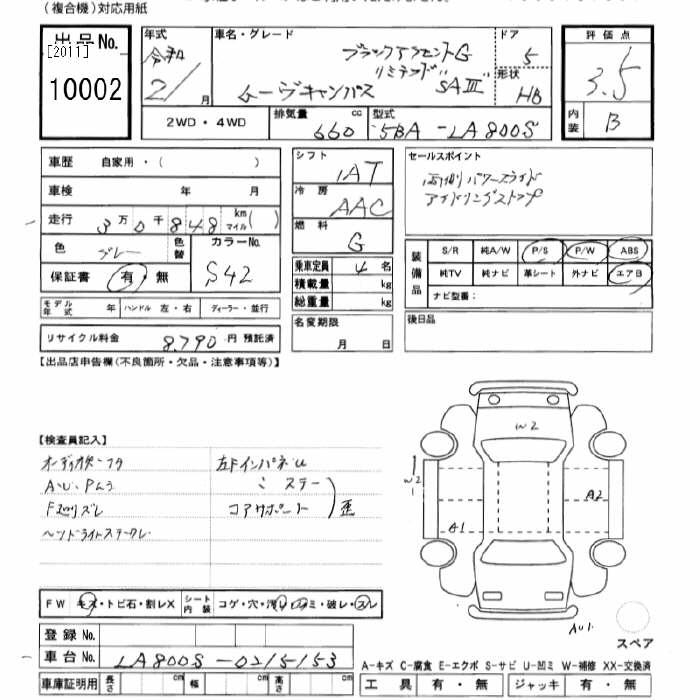 (複合機)対応用紙
出品No.
[2011]
10002
年式
令和
2/ 月
車名・グレード
ブラックアクセントG
リミテッド SAⅢ
ムーヴキャンバス
ドア
5
形状
HB
2WD・4WD
排気量
660 cc
型式
5BA-LA800S
評価点
3.5
内装
B
車歴 自家用・( )
車検 年 月
走行 3万0千848 km マイル( )
色 グレー 色替
カラーNo.
S42
保証書 有・無
モデル年式 年 ハンドル 左・右 ディーラー・並行
リサイクル料金 8,790 円 預託済
シフト
IAT
冷房
AAC
燃料
G
乗車定員 4 名
積載量 kg
総重量 kg
名変期限
月 日
セールスポイント
両側パワースライド
アイドリングストップ
装備品
S/R 純A/W P/S P/W ABS
純TV 純ナビ 革シート 外ナビ エアB
ナビ型番:
後日品
【出品店申告欄(不良箇所・欠品・注意事項等)】
【検査員記入】
A・U・Pムラ
ヘッドライトステークレ
左Fインパネu
〃 ステー
コアサポート
歪
W2
W2
A2
A1
AU1
FW キズ・トビ石・割レX
シート内装 コゲ・穴・汚レ・シミ・破レ・スレ
登録No.
車台No. LA800S-0215153
車庫証明用 長さ cm 幅 cm 高さ cm
スペア
A-キズ C-腐食 E-エクボ S-サビ U-凹ミ W-補修 XX-交換済
工具 有・無 ジャッキ 有・無